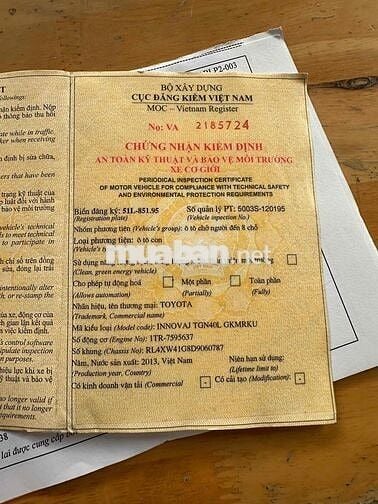 P2-003
BỘ XÂY DỰNG
CỤC ĐĂNG KIỂM VIỆT NAM
MOC – Vietnam Register
No: VA 2185724
CHỨNG NHẬN KIỂM ĐỊNH
AN TOÀN KỸ THUẬT VÀ BẢO VỆ MÔI TRƯỜNG
XE CƠ GIỚI
PERIODICAL INSPECTION CERTIFICATE
OF MOTOR VEHICLE FOR COMPLIANCE WITH TECHNICAL SAFETY
AND ENVIRONMENTAL PROTECTION REQUIREMENTS
Biển đăng ký: 51L-851.95 Số quản lý PT: 5003S-120195
(Registration plate) (Vehicle inspection No.)
Nhóm phương tiện (Vehicle's group): ô tô chở người đến 8 chỗ
Loại phương tiện: ô tô con
muaban.net
Sử dụng
(Clean, green energy vehicle)
Cho phép tự động hoá Một phần Toàn phần
(Allows automation) (Partially) (Fully)
Nhãn hiệu, tên thương mại: TOYOTA
(Trademark, Commercial name)
Mã kiểu loại (Model code): INNOVAJ TGN40L GKMRKU
Số động cơ (Engine No): 1TR-7595637
Số khung (Chassis No): RL4XW41G8D9060787
Năm, Nước sản xuất: 2013, Việt Nam Niên hạn sử dụng:
(Production year, Country) (Lifetime limit to)
Có kinh doanh vận tải (Commercial Có cải tạo (Modification):
followings:
kiểm định. Nộp
thông báo thu hồi
ate while in traffic.
ker when receiving
định bị sửa chữa,
ers that have been
trạng kỹ thuật của
luật đối với hành
bảo vệ môi trường
vehicle's technical
to participate in
chỉ số trên đồng
sửa, đóng lại trái
intentionally alter
or re-stamp the
xe, động cơ của
giao lận kết quả
việc kiểm định.
control software
manipulate inspection
purposes.
hiệu lực khi xe bị
thuật và bảo vệ
longer valid if
that it no longer
requirements.
lai được cung cấp bở